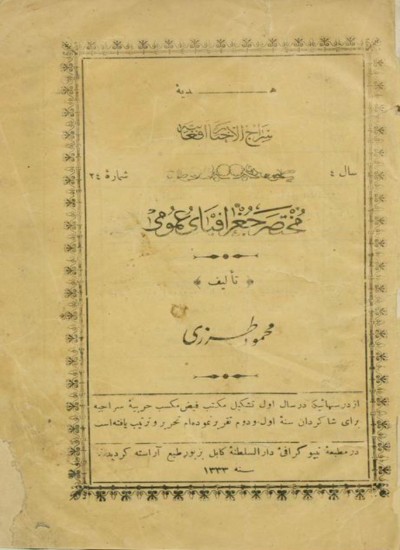 هدیهٔ
سراج الاخبار افغانیه
سال ٤
شماره ٢٤
مختصر جغرافیای عمومی
تألیف
محمود طرزی
از درسهائیکه در سال اول تشکیل مکتب فیض مکسب حربیهٔ سراجیه
برای شاگردان سنهٔ اول ودوم تقریر نموده‌ام تحریر و ترتیب یافته است
در مطبعهٔ تیپو گرافی دارالسلطنهٔ کابل بزیور طبع آراسته گردیده
سنه ١٣٣٣